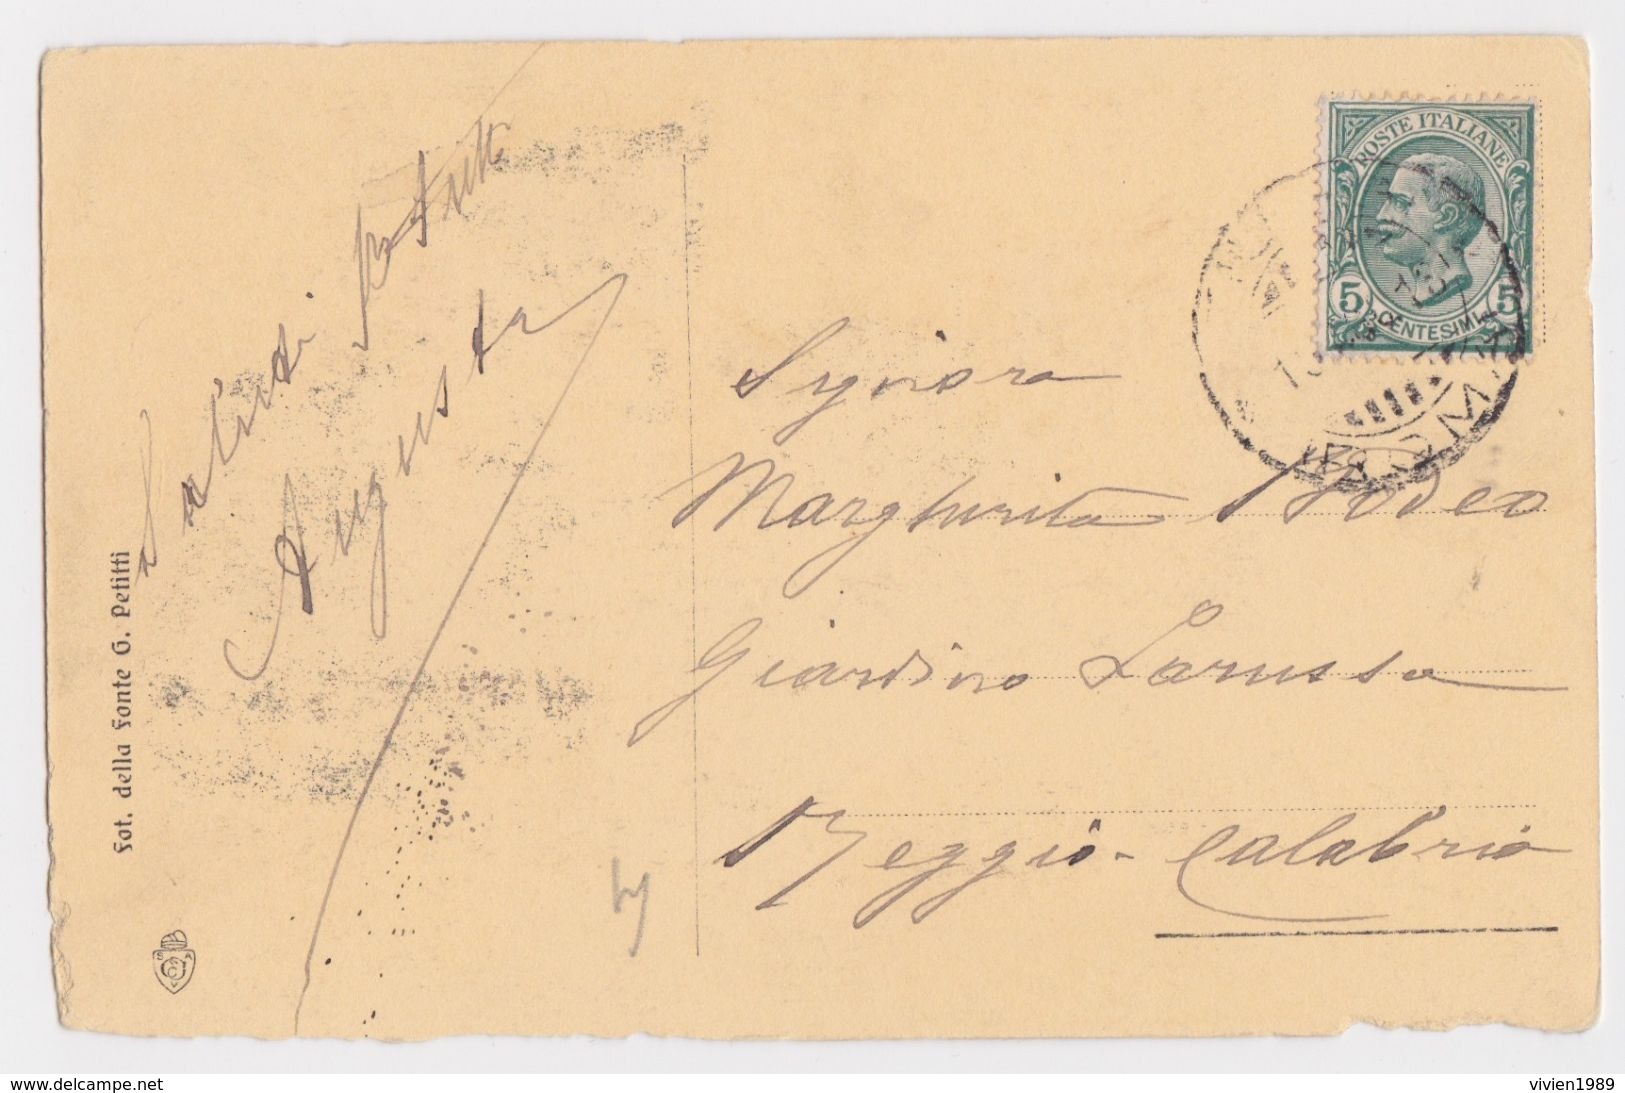 Saluti di
Augusta
POSTE ITALIANE
5 CENTESIMI 5
Signora
Margherita
Giardino Larussa
Reggio-Calabria
Fot. della Fonte G. Petitti
delcampe.net
vivien1989